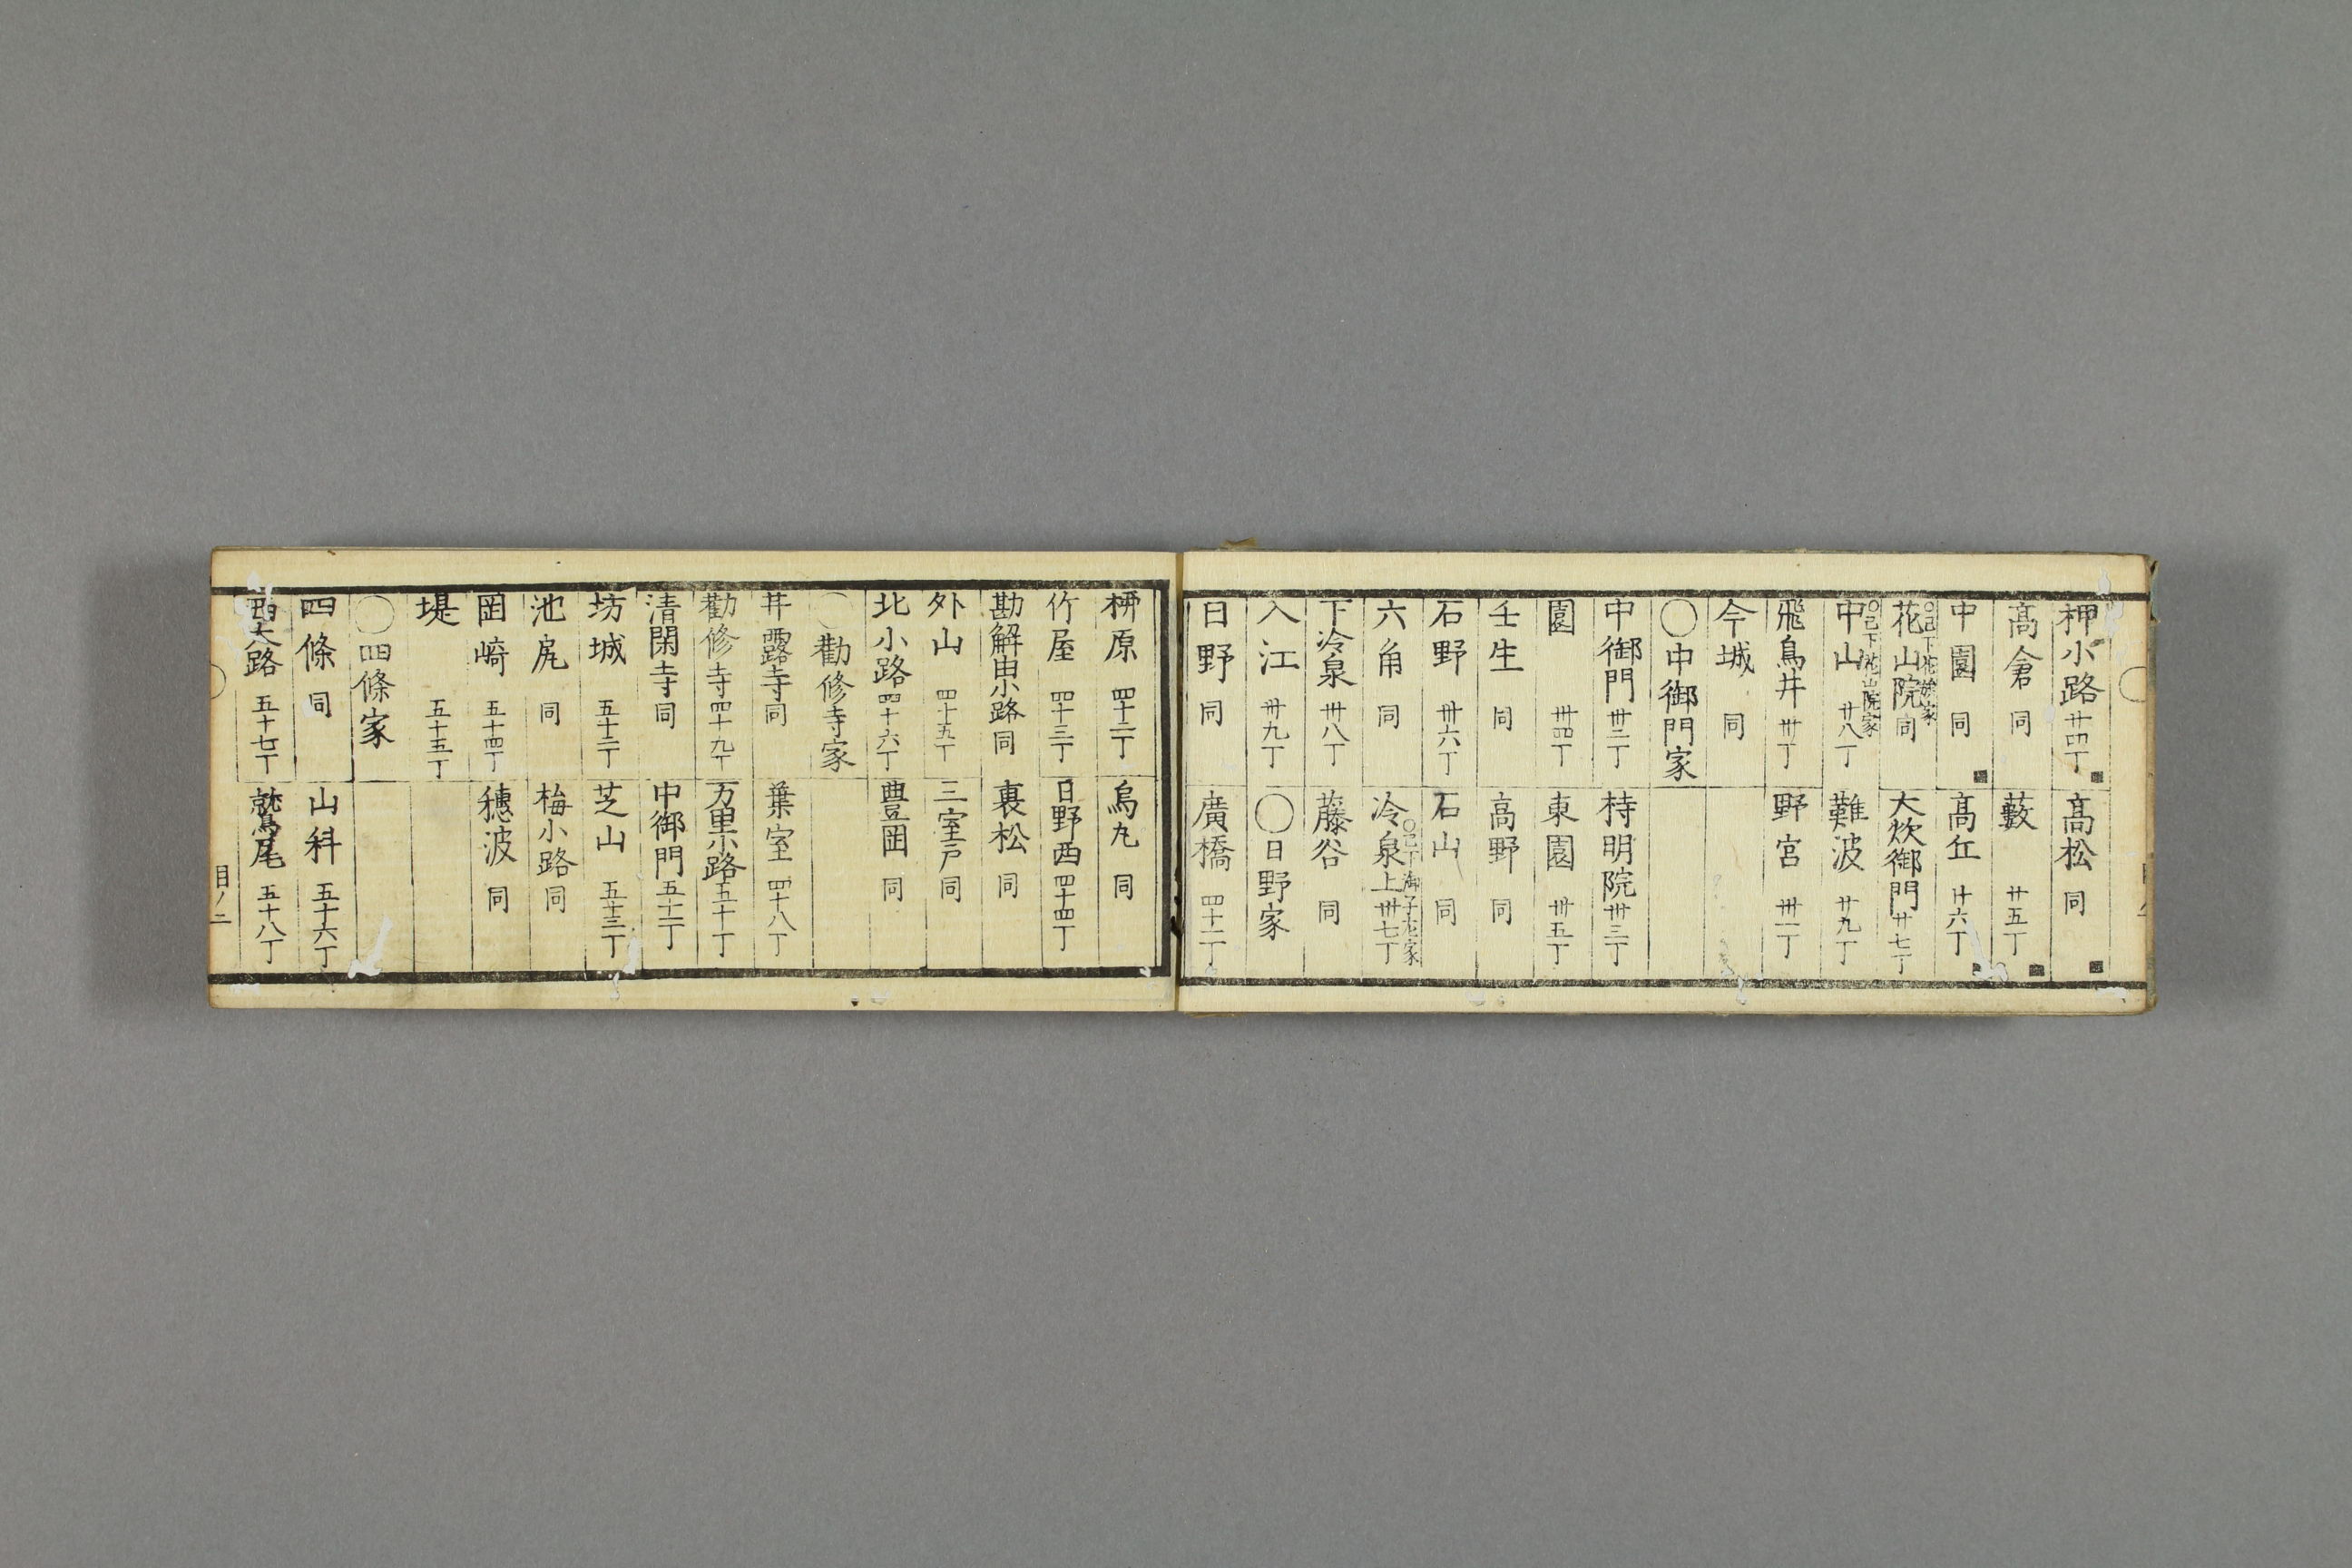 押小路 廿四丁
髙松 同
髙倉 同
藪 廿五丁
中園 同
髙丘 廿六丁
○已下花山院家
花山院 同
大炊御門 廿七丁
中山 廿八丁
難波 廿九丁
飛鳥井 丗丁
野宮 丗一丁
今城 同
○中御門家
中御門 丗二丁
持明院 丗三丁
園 丗四丁
東園 丗五丁
壬生 同
高野 同
石野 丗六丁
石山 同
六角 同
○已下御子左家
冷泉上 丗七丁
下冷泉 丗八丁
藤谷 同
入江 丗九丁
○日野家
日野 同
廣橋 四十一丁
栁原 四十二丁
烏丸 同
竹屋 四十三丁
日野西 四十四丁
勘解由小路 同
裏松 同
外山 四十五丁
三室戸 同
北小路 四十六丁
豊岡 同
○勸修寺家
井露寺 同
葉室 四十八丁
勸修寺 四十九丁
万里小路 五十丁
清閑寺 同
中御門 五十一丁
坊城 五十二丁
芝山 五十三丁
池尻 同
梅小路 同
岡崎 五十四丁
穗波 同
堤 五十五丁
○四條家
四條 同
山科 五十六丁
西大路 五十七丁
鷲尾 五十八丁
目ノ二